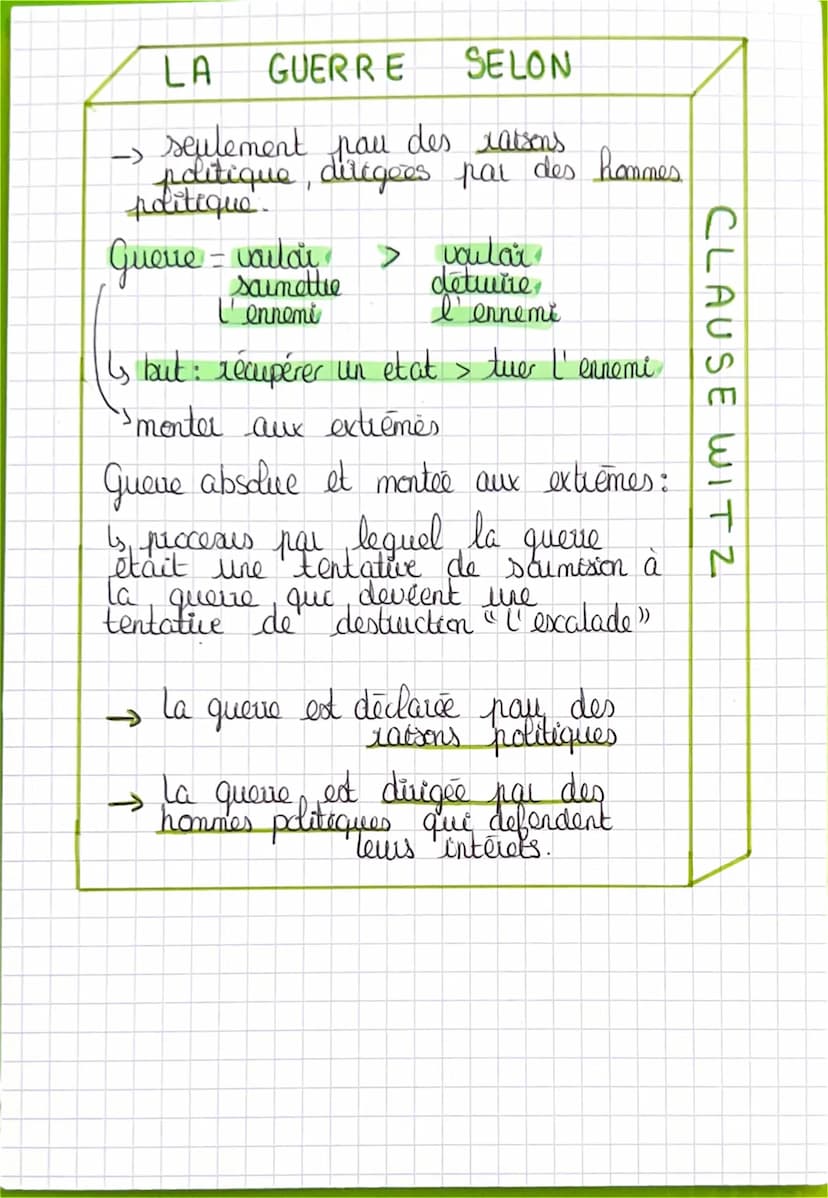 LA GUERRE SELON
CLAUSEWITZ
→ seulement pour des raisons
politique, dirigées par des hommes
politique.
Guerre = vouloir > vouloir
soumettre détruire
l'ennemi l'ennemi
↳ but : récupérer un etat > tuer l'ennemi
↳ monter aux extrêmes
Guerre absolue et montée aux extrêmes :
↳ processus par lequel la guerre
était une tentative de soumission à
la guerre qui devient une
tentative de destruction "l'escalade"
→ la guerre est déclarée pour des
raisons politiques
→ la guerre est dirigée par des
hommes politiques qui defendent
leurs intérêts.